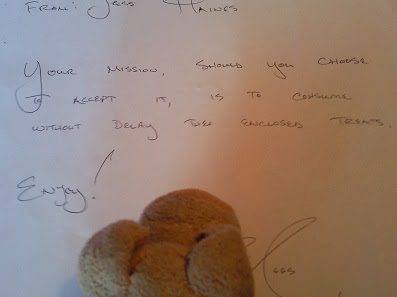 FROM: Jess Haines
Your mission, should you choose
to accept it, is to consume
without delay the enclosed treats.
Enjoy!
Jess